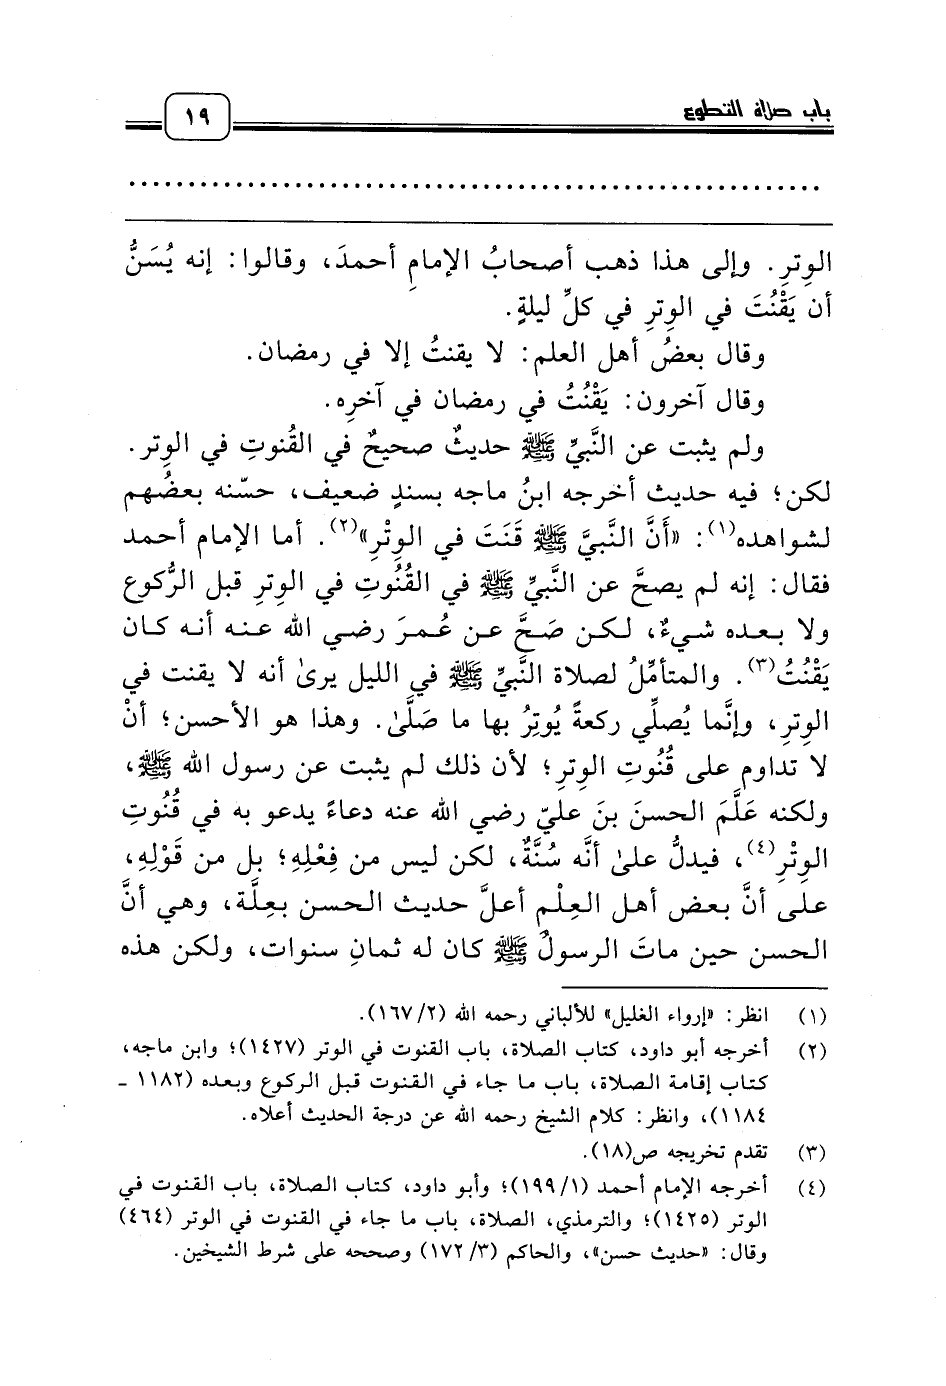 باب صلاة التطوع
١٩
الوِترِ. وإلى هذا ذهب أصحابُ الإمامِ أحمدَ، وقالوا: إنه يُسَنُّ
أن يَقْنُتَ في الوِترِ في كلِّ ليلةٍ.
وقال بعضُ أهل العلم: لا يقنتُ إلا في رمضان.
وقال آخرون: يَقْنُتُ في رمضان في آخرِه.
ولم يثبت عن النَّبيِّ ﷺ حديثٌ صحيحٌ في القُنوتِ في الوِتر.
لكن؛ فيه حديث أخرجه ابنُ ماجه بسندٍ ضعيف، حسّنه بعضُهم
لشواهده(١): «أنَّ النَّبيَّ ﷺ قَنَتَ في الوِتْرِ»(٢). أما الإمام أحمد
فقال: إنه لم يصحَّ عن النَّبيِّ ﷺ في القُنُوتِ في الوترِ قبل الرُّكوع
ولا بعده شيءٌ، لكن صَحَّ عن عُمرَ رضي الله عنه أنه كان
يَقْنُتُ(٣). والمتأمِّلُ لصلاة النَّبيِّ ﷺ في الليل يرىٰ أنه لا يقنت في
الوِترِ، وإنَّما يُصلِّي ركعةً يُوتِرُ بها ما صَلَّىٰ. وهذا هو الأحسن؛ أنْ
لا تداوم على قُنُوتِ الوِترِ؛ لأن ذلك لم يثبت عن رسول الله ﷺ،
ولكنه عَلَّمَ الحسنَ بنَ عليّ رضي الله عنه دعاءً يدعو به في قُنُوتِ
الوِتْرِ(٤)، فيدلُّ علىٰ أنَّه سُنَّةٌ، لكن ليس من فِعْلِهِ؛ بل من قَوْلِهِ،
على أنَّ بعض أهل العِلْم أعلَّ حديث الحسن بعِلَّة، وهي أنَّ
الحسن حين ماتَ الرسولُ ﷺ كان له ثمانِ سنوات، ولكن هذه
(١) انظر: «إرواء الغليل» للألباني رحمه الله (١٦٧/٢).
(٢) أخرجه أبو داود، كتاب الصلاة، باب القنوت في الوتر (١٤٢٧)؛ وابن ماجه،
كتاب إقامة الصلاة، باب ما جاء في القنوت قبل الركوع وبعده (١١٨٢ ـ
١١٨٤)، وانظر: كلام الشيخ رحمه الله عن درجة الحديث أعلاه.
(٣) تقدم تخريجه ص(١٨).
(٤) أخرجه الإمام أحمد (١٩٩/١)؛ وأبو داود، كتاب الصلاة، باب القنوت في
الوتر (١٤٢٥)؛ والترمذي، الصلاة، باب ما جاء في القنوت في الوتر (٤٦٤)
وقال: «حديث حسن»، والحاكم (١٧٢/٣) وصححه على شرط الشيخين.